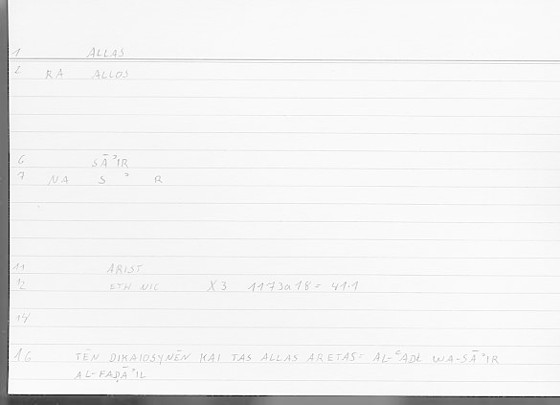 1 ALLAS
2 RA ALLOS
6 SĀʾIR
7 NA S ʾ R
11 ARIST
12 ETH NIC X3 1173a18 = 41.1
14
16 TĒN DIKAIOSYNĒN KAI TAS ALLAS ARETAS = AL-ʿADL WA-SĀʾIR
AL-FAḌĀʾIL